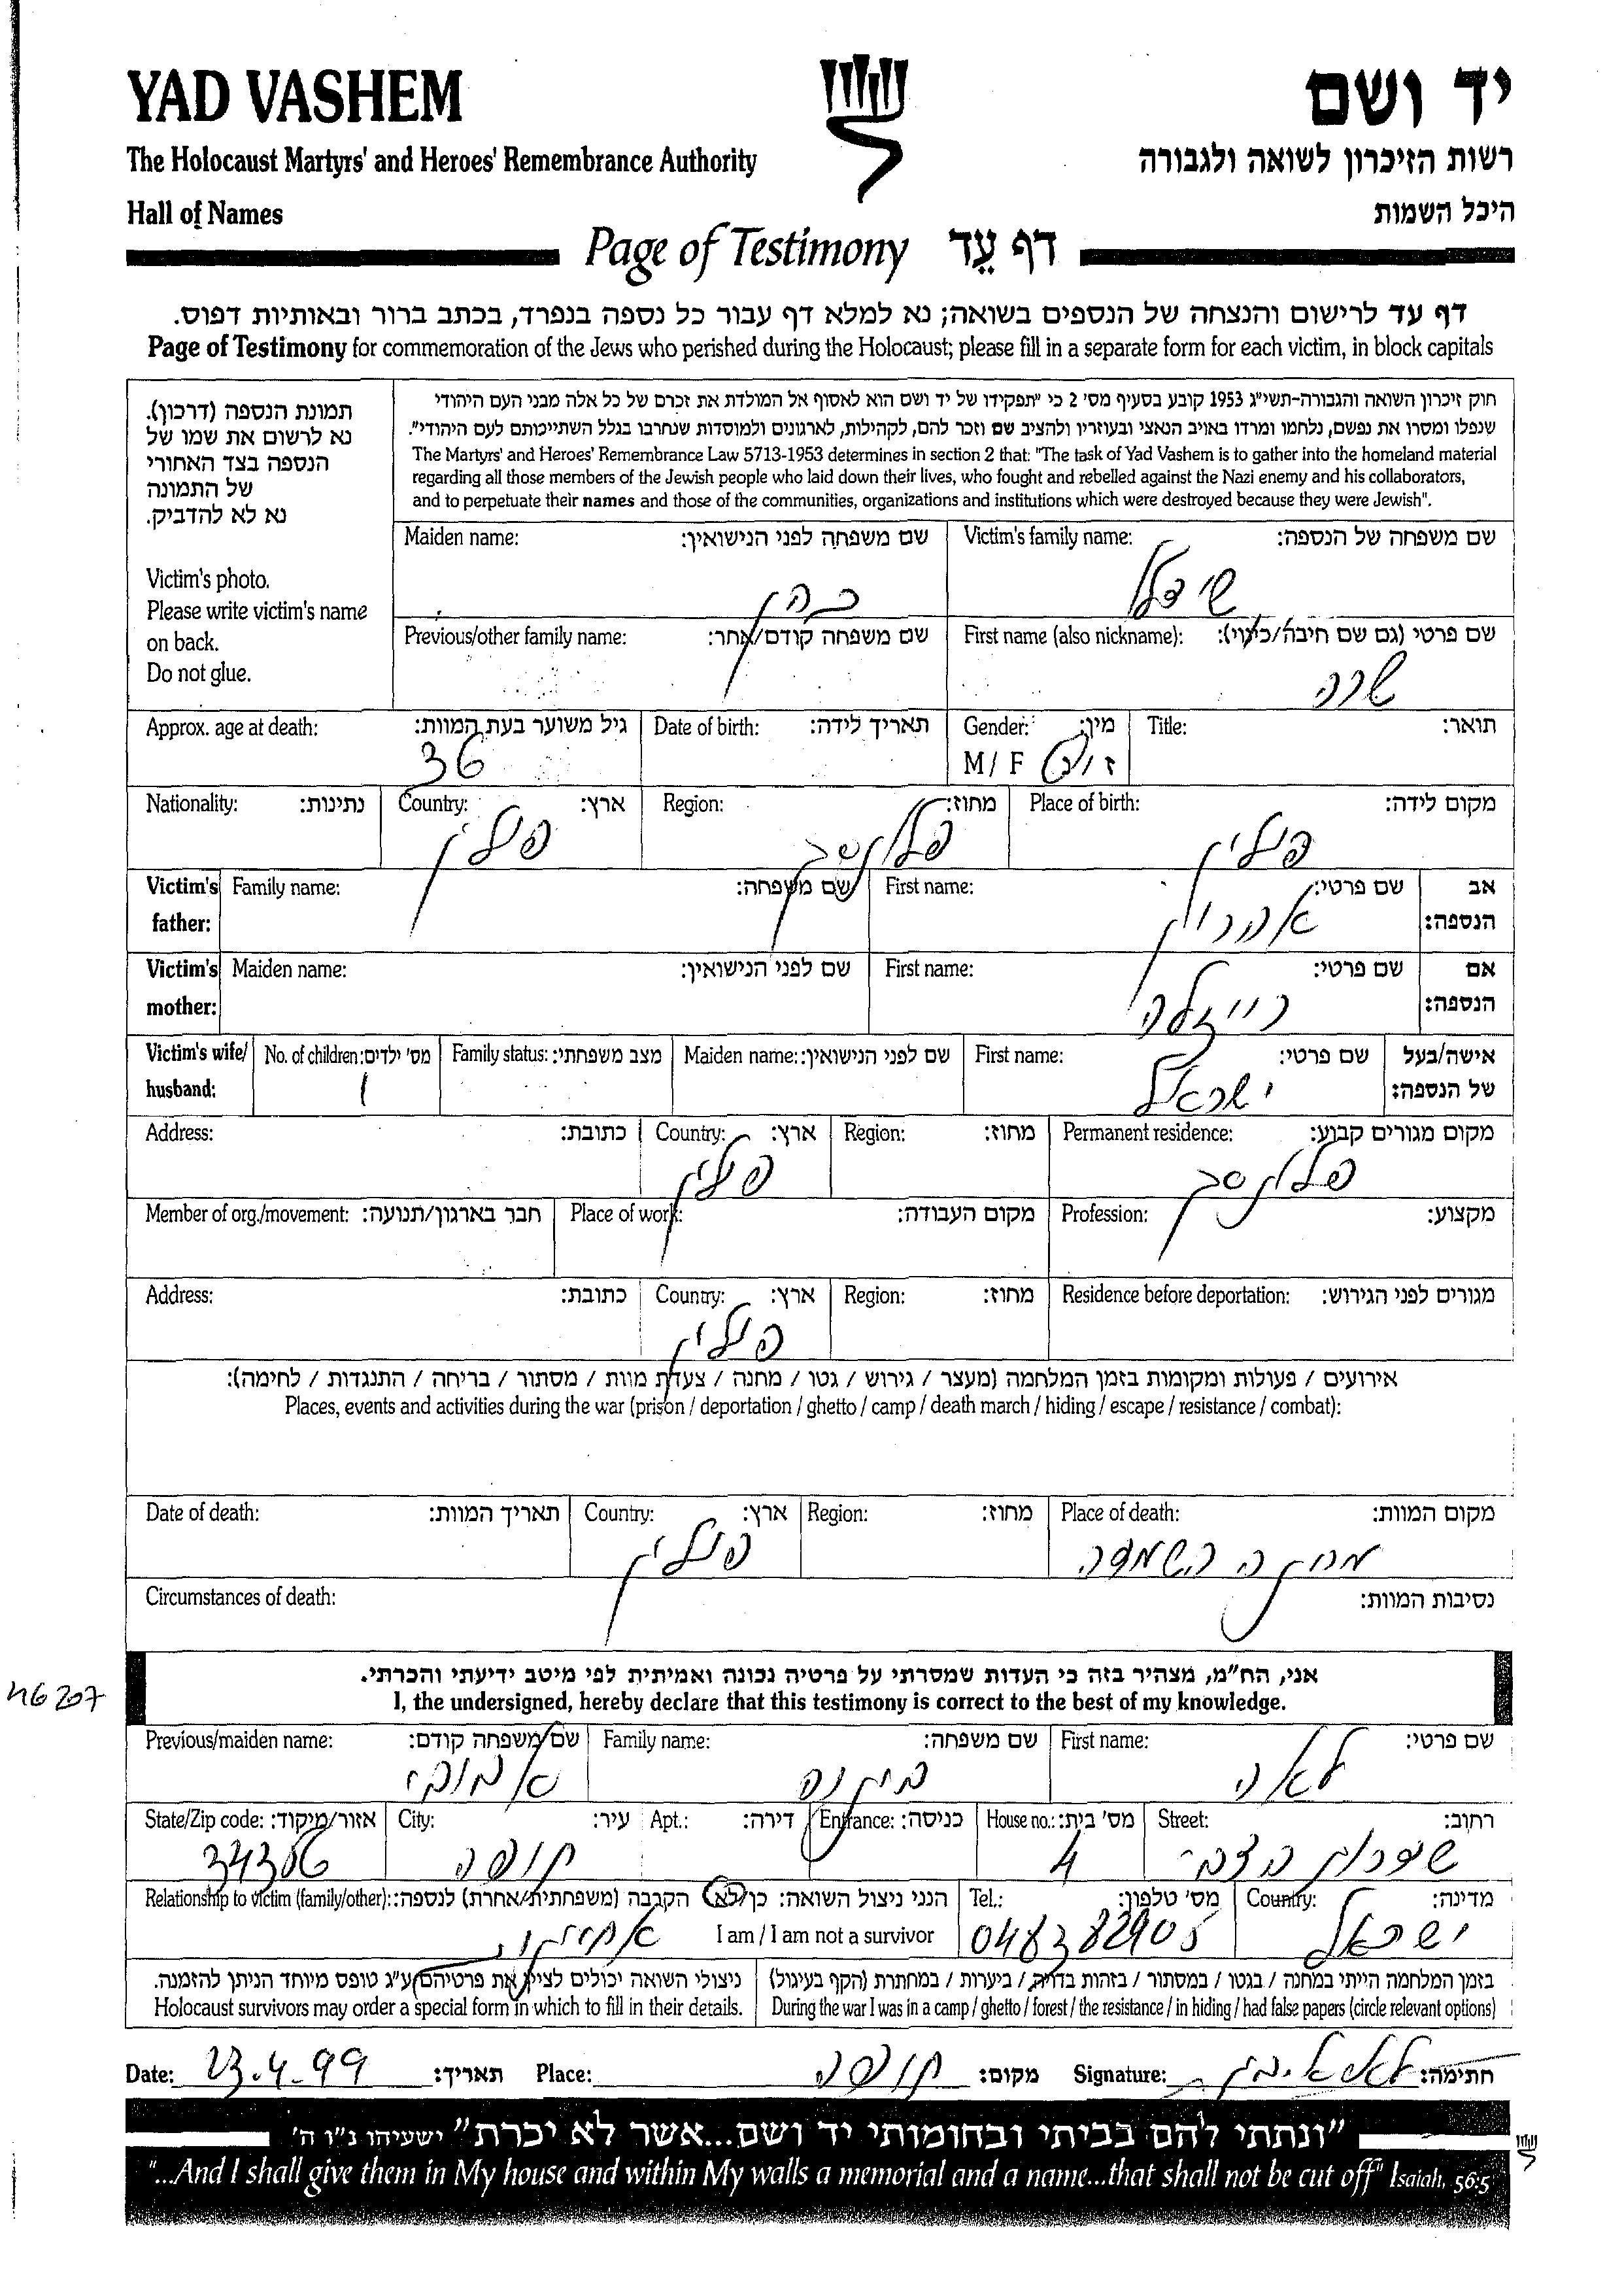 YAD VASHEM
יד ושם
The Holocaust Martyrs' and Heroes' Remembrance Authority
רשות הזיכרון לשואה ולגבורה
Hall of Names
היכל השמות
Page of Testimony דף עֵד
דף עד לרישום והנצחה של הנספים בשואה; נא למלא דף עבור כל נספה בנפרד, בכתב ברור ובאותיות דפוס.
Page of Testimony for commemoration of the Jews who perished during the Holocaust; please fill in a separate form for each victim, in block capitals
תמונת הנספה (דרכון).
נא לרשום את שמו של
הנספה בצד האחורי
של התמונה
נא לא להדביק.
Victim's photo.
Please write victim's name
on back.
Do not glue.
חוק זיכרון השואה והגבורה-תשי"ג 1953 קובע בסעיף מס' 2 כי "תפקידו של יד ושם הוא לאסוף אל המולדת את זכרם של כל אלה מבני העם היהודי
שנפלו ומסרו את נפשם, נלחמו ומרדו באויב הנאצי ובעוזריו ולהציב שם וזכר להם, לקהילות, לארגונים ולמוסדות שנחרבו בגלל השתייכותם לעם היהודי".
The Martyrs' and Heroes' Remembrance Law 5713-1953 determines in section 2 that: "The task of Yad Vashem is to gather into the homeland material
regarding all those members of the Jewish people who laid down their lives, who fought and rebelled against the Nazi enemy and his collaborators,
and to perpetuate their names and those of the communities, organizations and institutions which were destroyed because they were Jewish".
Victim's family name: שם משפחה של הנספה:
Maiden name: שם משפחה לפני הנישואין:
כהן
First name (also nickname): שם פרטי (גם שם חיבה/כינוי):
שרה
Previous/other family name: שם משפחה קודם/אחר:
Title: תואר:
Gender: מין:
M / F ז / נ
Date of birth: תאריך לידה:
Approx. age at death: גיל משוער בעת המוות:
36
Place of birth: מקום לידה:
פולין
Region: מחוז:
פלונסק
Country: ארץ:
פולין
Nationality: נתינות:
Victim's father: אב הנספה:
First name: שם פרטי:
אהרון
Family name: שם משפחה:
Victim's mother: אם הנספה:
First name: שם פרטי:
רייזלה
Maiden name: שם לפני הנישואין:
Victim's wife/ husband: אישה/בעל של הנספה:
First name: שם פרטי:
ישראל
Maiden name: שם לפני הנישואין:
Family status: מצב משפחתי:
No. of children: מס' ילדים:
1
Permanent residence: מקום מגורים קבוע:
פלונסק
Region: מחוז:
Country: ארץ:
פולין
Address: כתובת:
Profession: מקצוע:
Place of work: מקום העבודה:
Member of org./movement: חבר בארגון/תנועה:
Residence before deportation: מגורים לפני הגירוש:
Region: מחוז:
Country: ארץ:
פולין
Address: כתובת:
אירועים / פעולות ומקומות בזמן המלחמה (מעצר / גירוש / גטו / מחנה / צעדת מוות / מסתור / בריחה / התנגדות / לחימה):
Places, events and activities during the war (prison / deportation / ghetto / camp / death march / hiding / escape / resistance / combat):
Place of death: מקום המוות:
מחנה השמדה
Region: מחוז:
Country: ארץ:
פולין
Date of death: תאריך המוות:
Circumstances of death: נסיבות המוות:
אני, הח"מ, מצהיר בזה כי העדות שמסרתי על פרטיה נכונה ואמיתית לפי מיטב ידיעתי והכרתי.
I, the undersigned, hereby declare that this testimony is correct to the best of my knowledge.
First name: שם פרטי:
לאה
Family name: שם משפחה:
Previous/maiden name: שם/משפחה קודם:
Street: רחוב:
House no.: מס' בית:
4
Entrance: כניסה:
Apt.: דירה:
City: עיר:
חיפה
State/Zip code: אזור/מיקוד:
34386
Country: מדינה:
ישראל
Tel.: מס' טלפון:
048382905
הנני ניצול השואה: כן/לא
I am / I am not a survivor
Relationship to victim (family/other): הקרבה (משפחתית/אחרת) לנספה:
אחיינית
בזמן המלחמה הייתי במחנה / בגטו / במסתור / בזהות בדויה / ביערות / במחתרת (הקף בעיגול)
During the war I was in a camp / ghetto / forest / the resistance / in hiding / had false papers (circle relevant options)
ניצולי השואה יכולים לציין את פרטיהם ע"ג טופס מיוחד הניתן להזמנה.
Holocaust survivors may order a special form in which to fill in their details.
Date: 23.4.99 תאריך:
Place: חיפה מקום:
Signature: חתימה:
"ונתתי להם בביתי ובחומותי יד ושם...אשר לא יכרת" ישעיהו נ"ו ה'
"...And I shall give them in My house and within My walls a memorial and a name...that shall not be cut off" Isaiah, 56:5